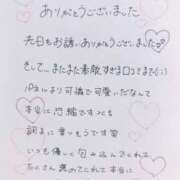 ありがとうございました
先日もお誘いありがとうございました
そして…またまた素敵すぎる口コミまで(;;)
パネルより可愛いだなんて
本当に恐縮ですっ
調子に乗っちゃう笑
いつも優しく包み込んでくれて
たくさん褒めてくれて本当に